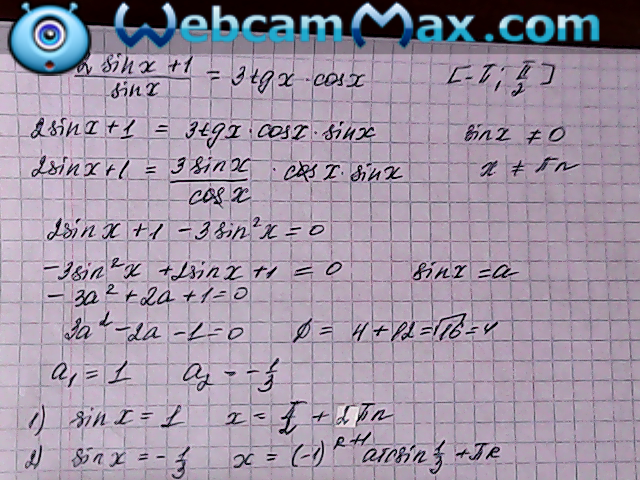 WebcamMax.com
(2 sin x + 1) / sin x = 3 tg x · cos x [-π; π/2]
2 sin x + 1 = 3 tg x · cos x · sin x sin x ≠ 0
2 sin x + 1 = (3 sin x / cos x) · cos x · sin x x ≠ πn
2 sin x + 1 - 3 sin² x = 0
-3 sin² x + 2 sin x + 1 = 0 sin x = a
-3a² + 2a + 1 = 0
3a² - 2a - 1 = 0 D = 4 + 12 = √16 = 4
a₁ = 1 a₂ = -1/3
1) sin x = 1 x = π/2 + 2πn
2) sin x = -1/3 x = (-1)^(k+1) arcsin 1/3 + πk